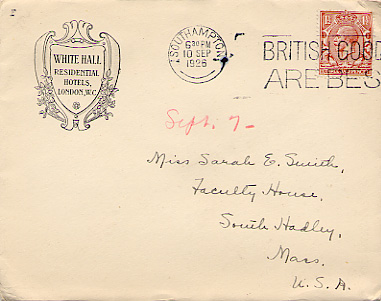 WHITE HALL
RESIDENTIAL
HOTELS,
LONDON, W.C.
SOUTHAMPTON
6 30 PM
10 SEP
1926
BRITISH GOOD
ARE BES
Sept. 7-
Miss Sarah E. Smith,
Faculty House,
South Hadley,
Mass.
U.S.A.